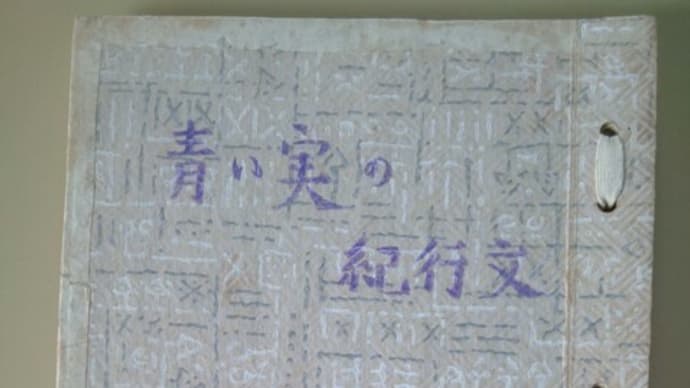 青い実の
紀行文